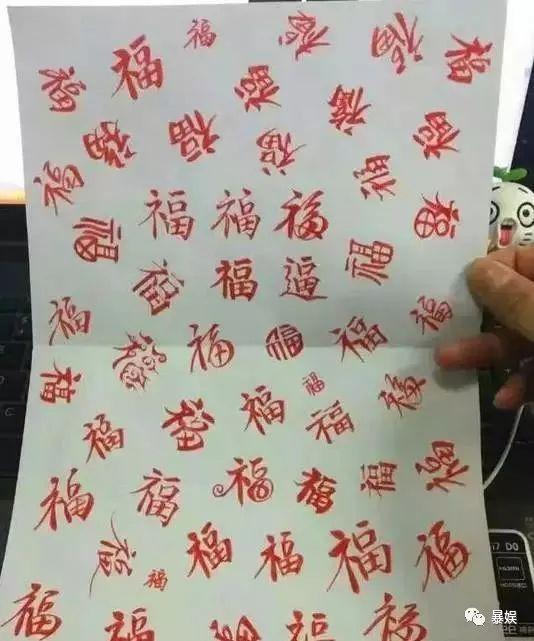 福 福 福 福 福 福
福 福 福 福 福 福
福 福
福 福 福 福 福
福 福 逼 福
福 福 福 福 福 福
福 福 福 福 福 福 福
福 福 福 福 福 福
福 福 福 福 福 福
福 福 福 福 福
暴娱